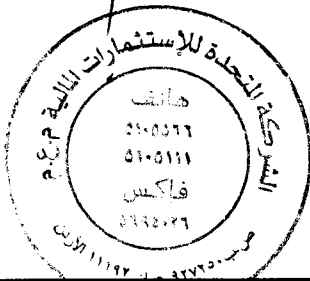 الشركة المتحدة للإستثمارات المالية م.ع.م
هاتف
٥١٠٥٥٦٦
٥١٠٥١١١
فاكس
٥٦٩٥٠٢٦
ص.ب ٩٢٧٢٥٠ ١١١٩٢ الأردن